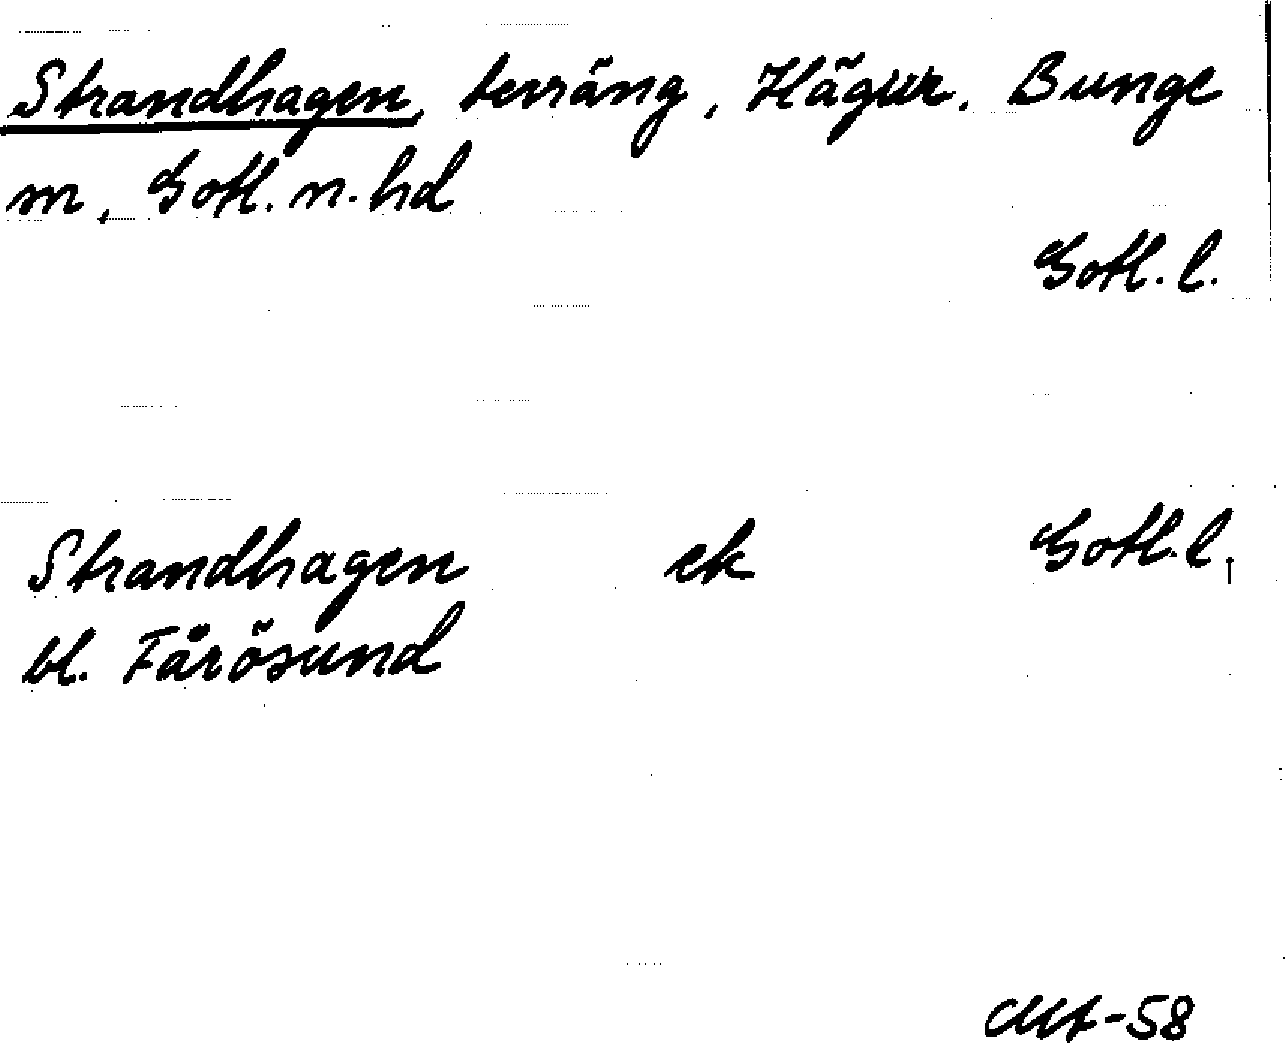 Strandhagen, terräng, Hägur, Bunge
m, Gotl. n. hd
Gotl. l.
Strandhagen ek Gotl. l.
bl. Fårösund